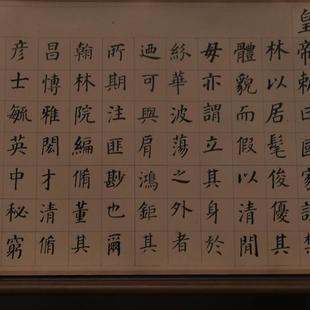 皇帝敕曰國家設禁
林以居髦俊優其
體貌而假以清閒
毋亦謂立其身於
紛華波蕩之外者
迺可與肩鴻鉅其
所期注匪尠也爾
翰林院編脩董其
昌愽雅閎才清脩
彥士毓英中秘窮